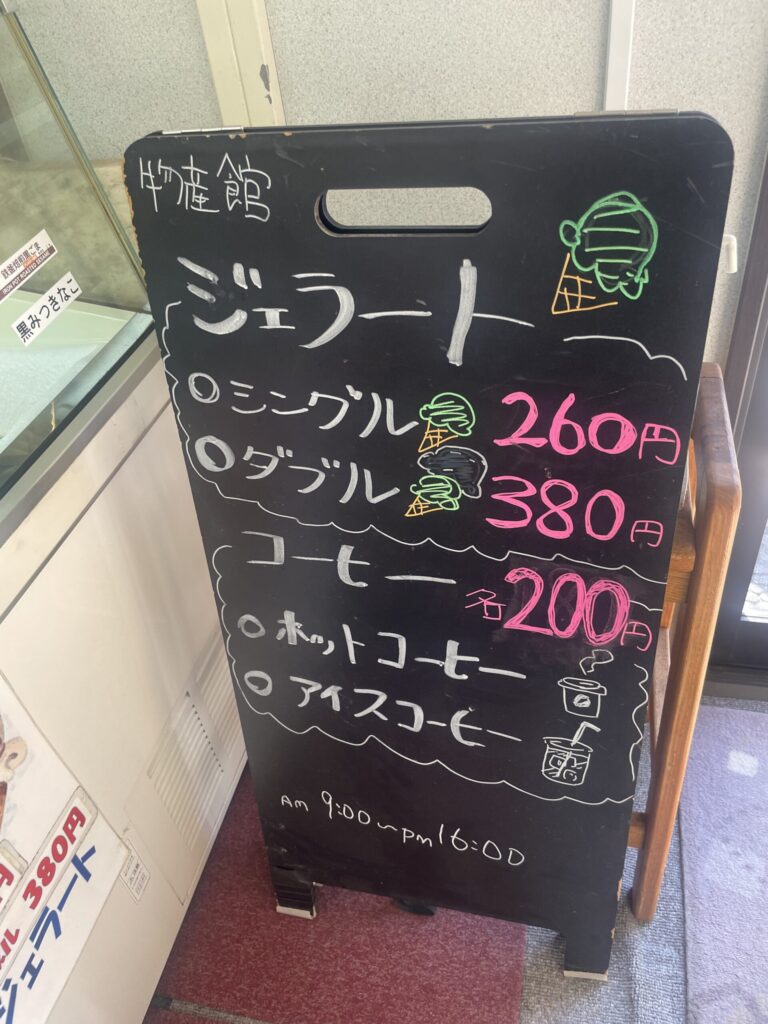 物産館
ジェラート
○シングル 260円
○ダブル 380円
コーヒー 各200円
○ホットコーヒー
○アイスコーヒー
AM 9:00～PM16:00
鉄釜焙煎黒ごま
IRON POT ROASTED SESAME
黒みつきなこ
円
ル 380円
ジェラート